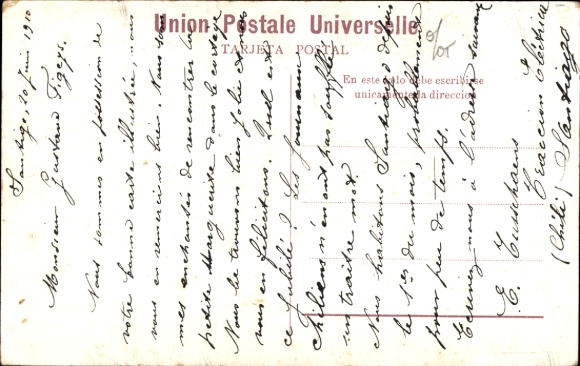 Union Postale Universelle
TARJETA POSTAL
En este solo debe escribirse
unicamente la direccion
Santiago, 20 Juin 1910
Monsieur Gustave Figeys.
Nous sommes en possession de
votre bonne carte illustrée, nous
vous en remercions bien. Nous sommes
enchantés de rencontrer la
petite Marguerite dans le cortège
Nous la trouvons bien jolie et nous
vous en félicitons. Quel est
ce jubilé? Les journaux
Chiliens n'en ont pas soufflé
un traître mot.
Nous habitons Santiago depuis
le 1er du mois, probablement
pour peu de temps.
Ecrivez nous à l'adresse suivante
E.
Traccion Electrica
(Chili) Santiago